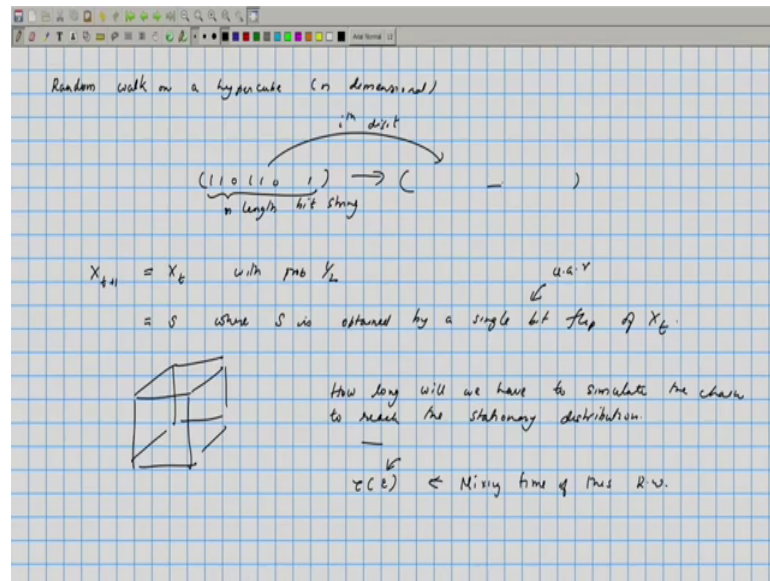 Arial Normal 12
Random walk on a hypercube (n dimensional)
iᵗʰ digit
(1 1 0 1 1 0 1) → ( _ )
n length bit string
X_{t+1} = X_t with prob 1/2
u.a.r
= S where S is obtained by a single bit flip of X_t.
How long will we have to simulate the chain
to reach the stationary distribution.
τ(ε) ← Mixing time of this R.W.